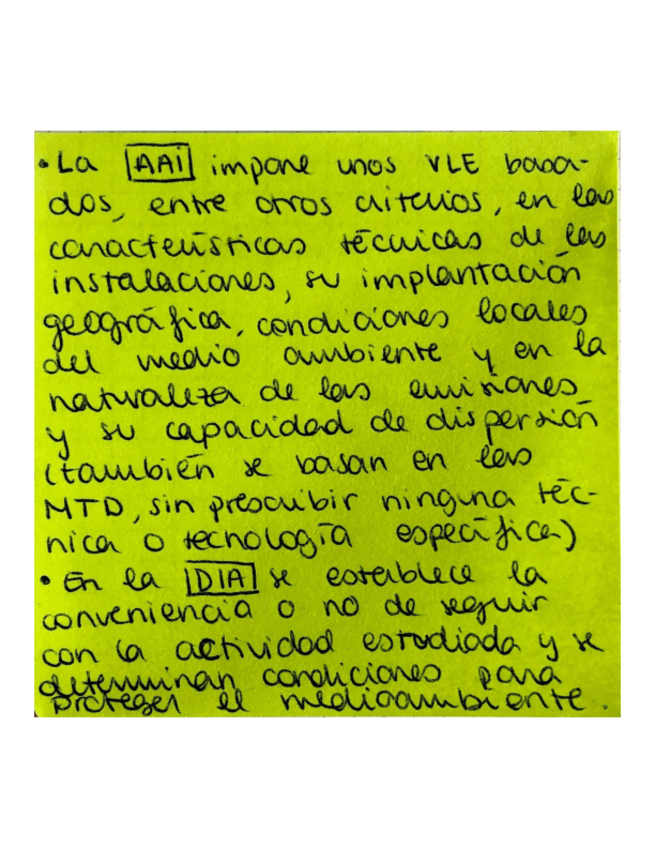 • La AAI impone unos VLE basa-
dos, entre otros criterios, en las
características técnicas de las
instalaciones, su implantación
geográfica, condiciones locales
del medio ambiente y en la
naturaleza de las emisiones
y su capacidad de dispersión
(también se basan en las
MTD, sin prescribir ninguna téc-
nica o tecnología específica)
• En la DIA se establece la
conveniencia o no de seguir
con la actividad estudiada y se
determinan condiciones para
proteger el medioambiente.